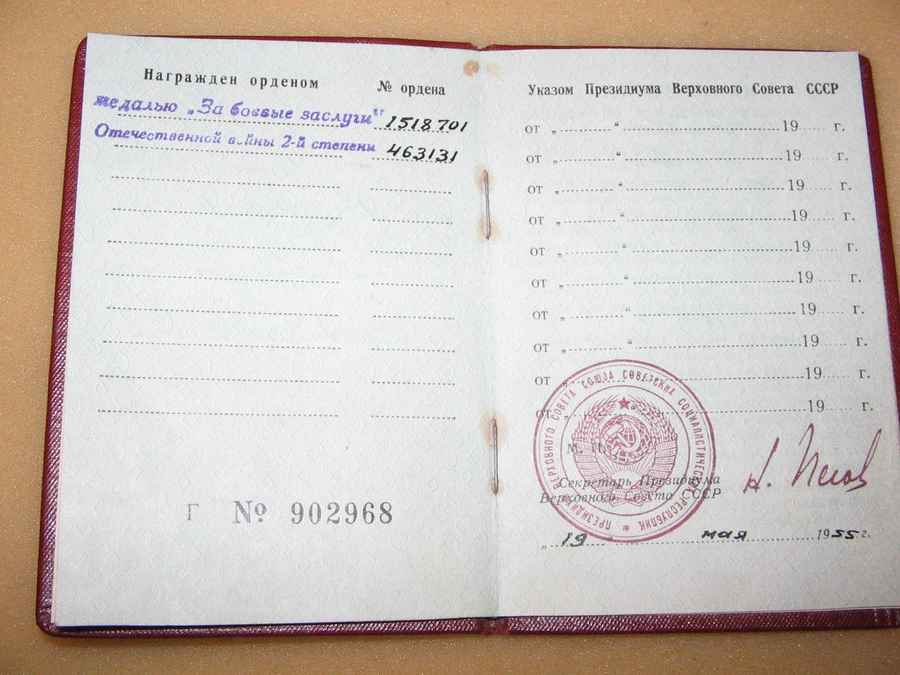 Награжден орденом № ордена
медалью „За боевые заслуги" 1518701
Отечественной войны 2-й степени 463131
Г № 902968
Указом Президиума Верховного Совета СССР
от „ “ 19 г.
от „ “ 19 г.
от „ “ 19 г.
от „ “ 19 г.
от „ “ 19 г.
от „ “ 19 г.
от „ “ 19 г.
от „ “ 19 г.
от „ “ 19 г.
от „ “ 19 г.
М.
Секретарь Президиума
Верховного Совета СССР
Н. Пегов
„19“ мая 1955 г.
ПРЕЗИДИУМ ВЕРХОВНОГО СОВЕТА СОЮЗА СОВЕТСКИХ СОЦИАЛИСТИЧЕСКИХ РЕСПУБЛИК